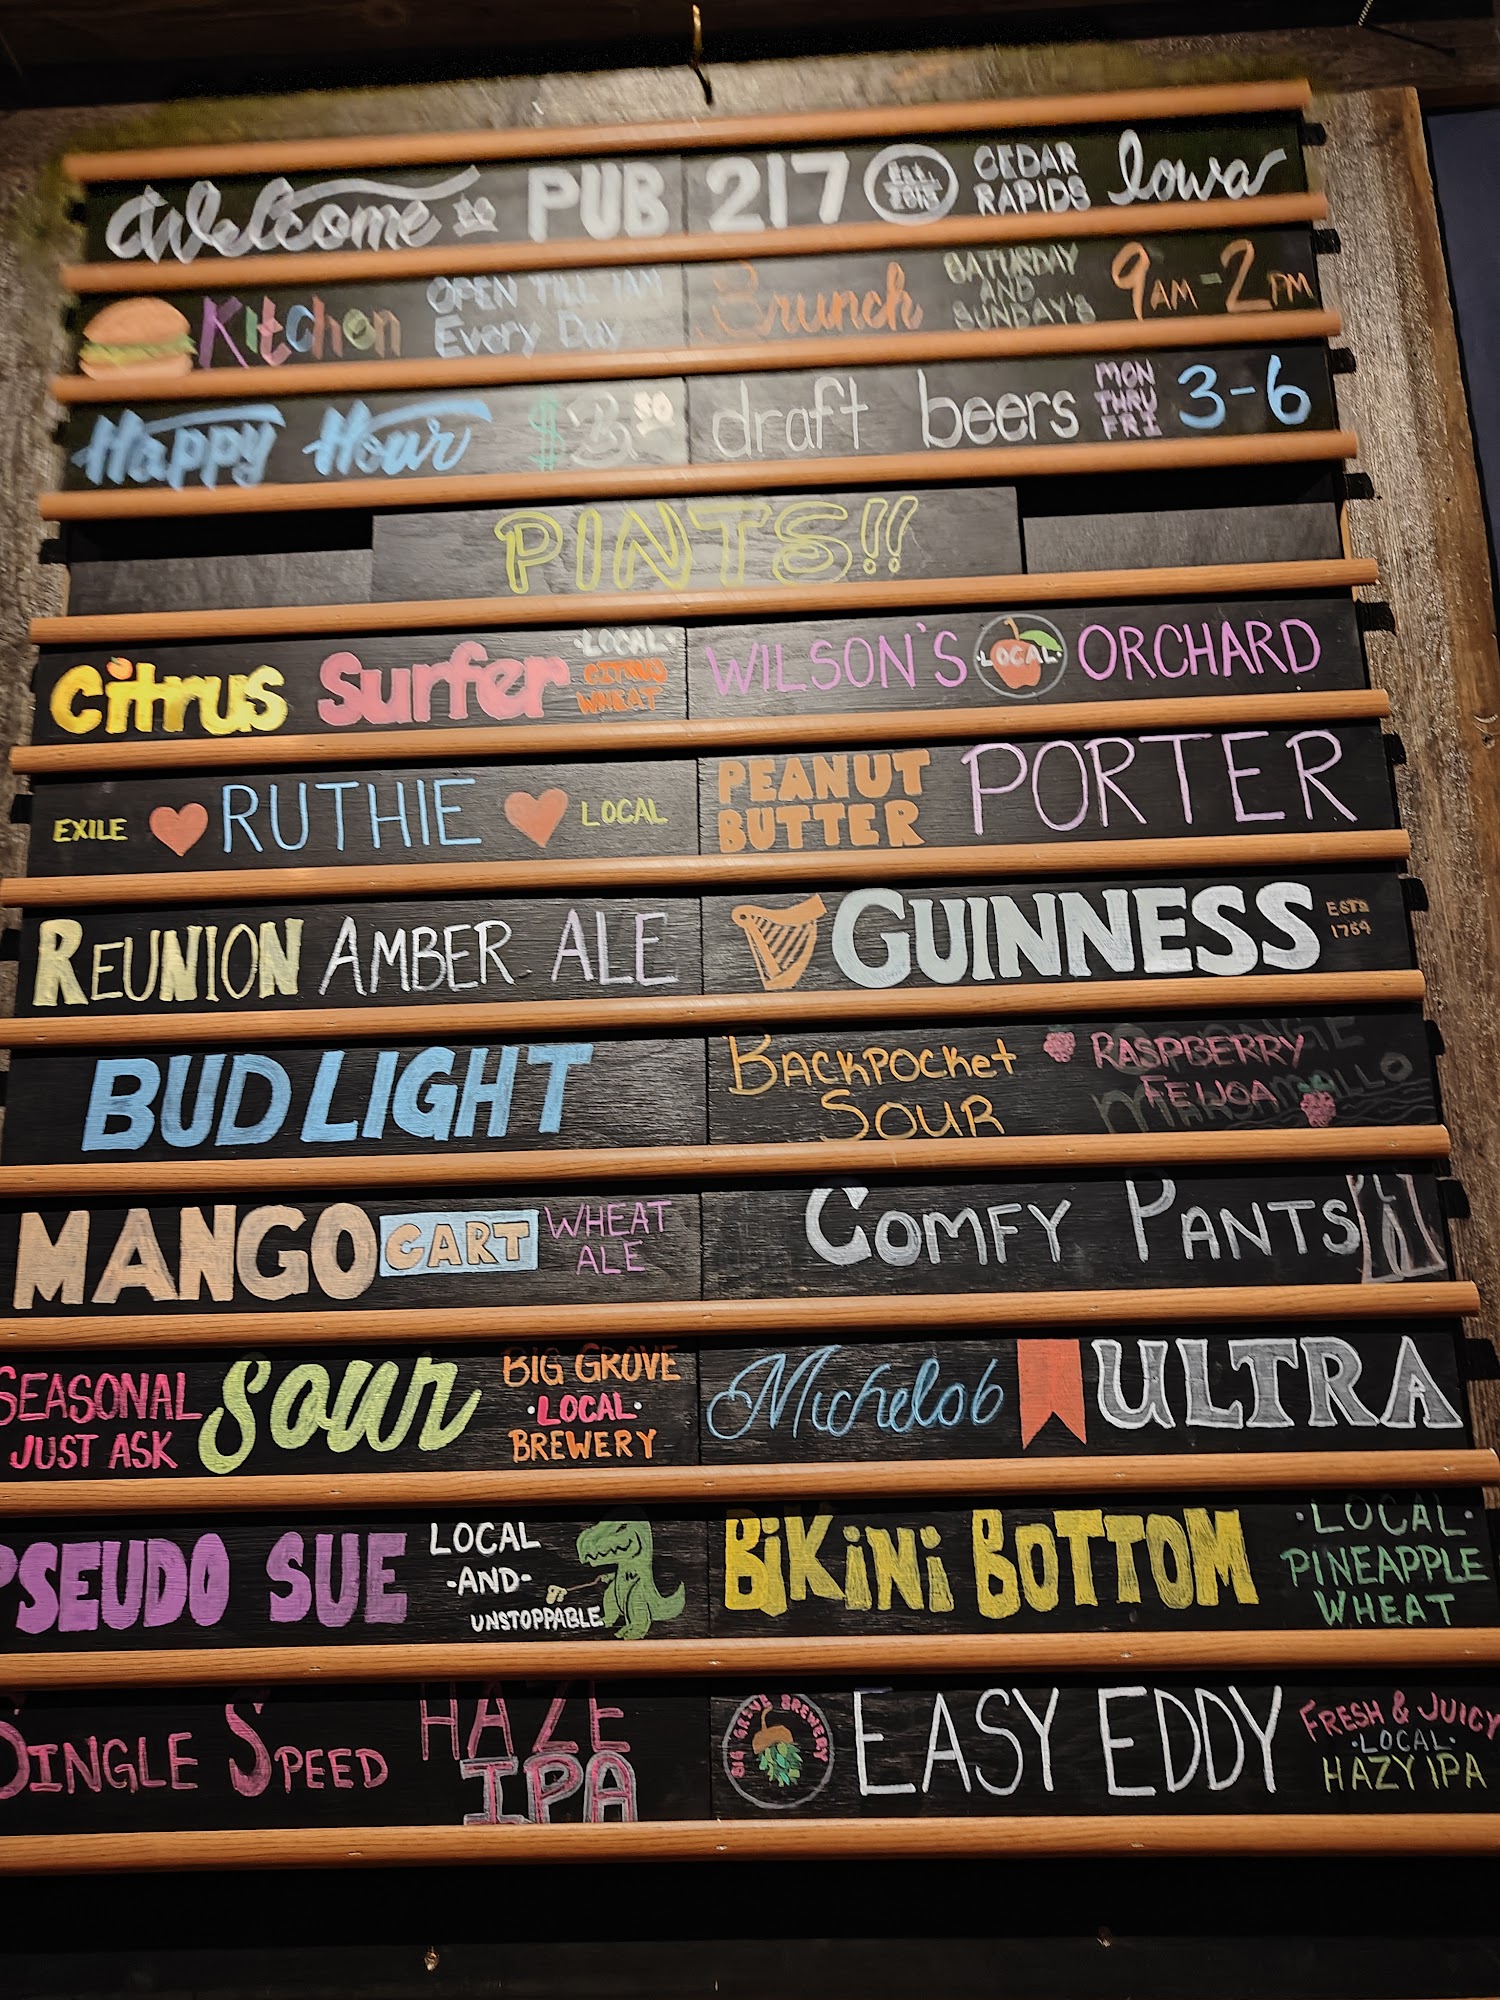 Welcome to PUB 217 Est. 2013 CEDAR RAPIDS Iowa
Kitchen OPEN TILL 1AM Every Day Brunch SATURDAY AND SUNDAY'S 9AM-2PM
Happy Hour $3.50 draft beers MON THRU FRI 3-6
PINTS!!
Citrus Surfer ·LOCAL· CITRUS WHEAT WILSON'S ·LOCAL· ORCHARD
EXILE RUTHIE LOCAL PEANUT BUTTER PORTER
REUNION AMBER ALE GUINNESS ESTD 1759
BUD LIGHT BACKPOCKET SOUR RASPBERRY FEIJOA
MANGO CART WHEAT ALE COMFY PANTS
SEASONAL JUST ASK Sour BIG GROVE ·LOCAL· BREWERY Michelob ULTRA
PSEUDO SUE LOCAL -AND- UNSTOPPABLE BIKINI BOTTOM ·LOCAL· PINEAPPLE WHEAT
SINGLE SPEED HAZE IPA BIG GROVE BREWERY EASY EDDY FRESH & JUICY ·LOCAL· HAZY IPA